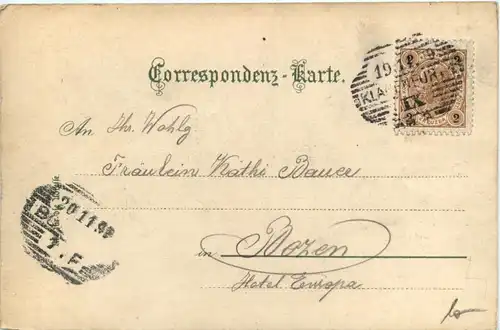 Correspondenz-Karte.
2 2
19
KLAGENFURT
2 2
An Ihr. Wohlg
Fräulein Käthi Bauer
20 11 9
BOZ
F
in Bozen
Hotel Europa